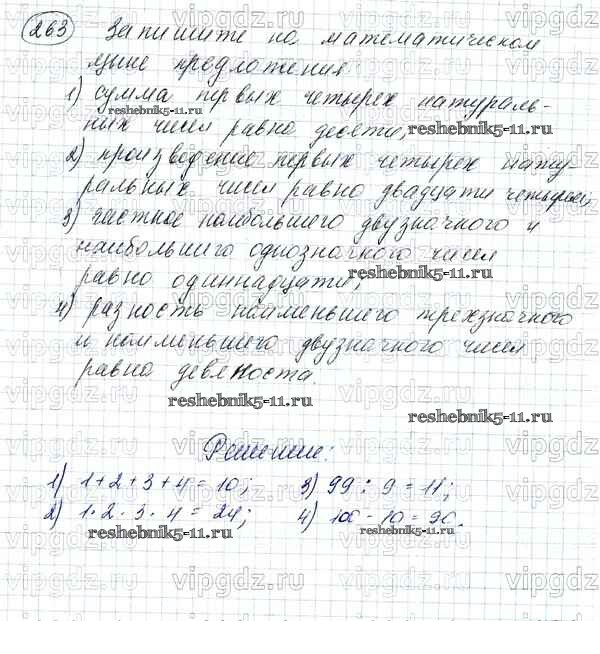 263 Запишите на математическом
языке предложения:
1) сумма первых четырех натураль-
ных чисел равна десяти;
2) произведение первых четырех нату
ральных чисел равно двадцати четырем;
3) частное наибольшего двузначного и
наибольшего однозначного чисел
равно одиннадцати;
4) разность наименьшего трехзначного
и наименьшего двузначного чисел
равна девяноста.
Решение:
1) 1+2+3+4=10; 3) 99:9=11;
2) 1·2·3·4=24; 4) 100-10=90.
vipgdz.ru
reshebnik5-11.ru